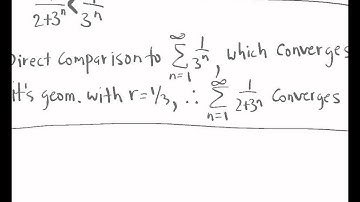 1/(2+3ⁿ) < 1/3ⁿ
Direct Comparison to ∑_{n=1}^{∞} 1/3ⁿ, which converges
it's geom. with r=1/3, ∴ ∑_{n=1}^{∞} 1/(2+3ⁿ) Converges